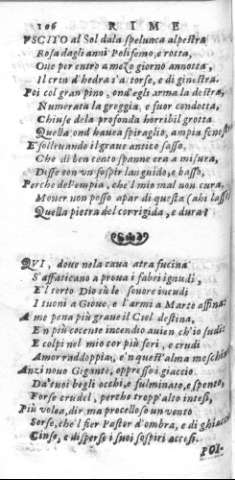 106 RIME
VSCITO al Sol dala spelunca alpestra
Rosa dagli anni Polifemo, e rotta,
Oue per entro a mezo giorno annotta,
Il crin d'hedra s'a torse, e di ginestra.
Poi col gran pino, ond'egli arma la destra,
Numerata la greggia, e fuor condotta,
Chiuse dela profonda horribil grotta
Quella ond'hauea spiraglio, ampia fenestra
E solleuando il graue antico sasso,
Che di ben cento spanne era a misura,
Disse con vn sospir languido, e basso,
Perche del'empia, che'l mio mal non cura,
Mouer non posso apar di questa (ahi lasso)
Quella pietra del cor rigida, e dura?
QVI, doue nela caua atra fucina
S'affaticano a proua i fabri ignudi,
E'l torto Dio sù le sonore incudi
I tuoni a Gioue, e l'armi a Marte affina:
A me pena più graue il Ciel destina,
En più cocente incendio auien ch'io sudi:
E colpi nel mio cor più feri, e crudi
Amor raddoppia, e'n quest'alma meschina
Anzi nouo Gigante, oppresso i giaccio
Da'tuoi begli occhi, e fulminato, e spento,
Forse crudel, perche tropp'alto intesi,
Più volea, dir ma procelloso un vento
Sorse, che'l fier Pastor d'ombra, e di ghiaccio
Cinse, e disperse i suoi sospiri accesi.
POI-